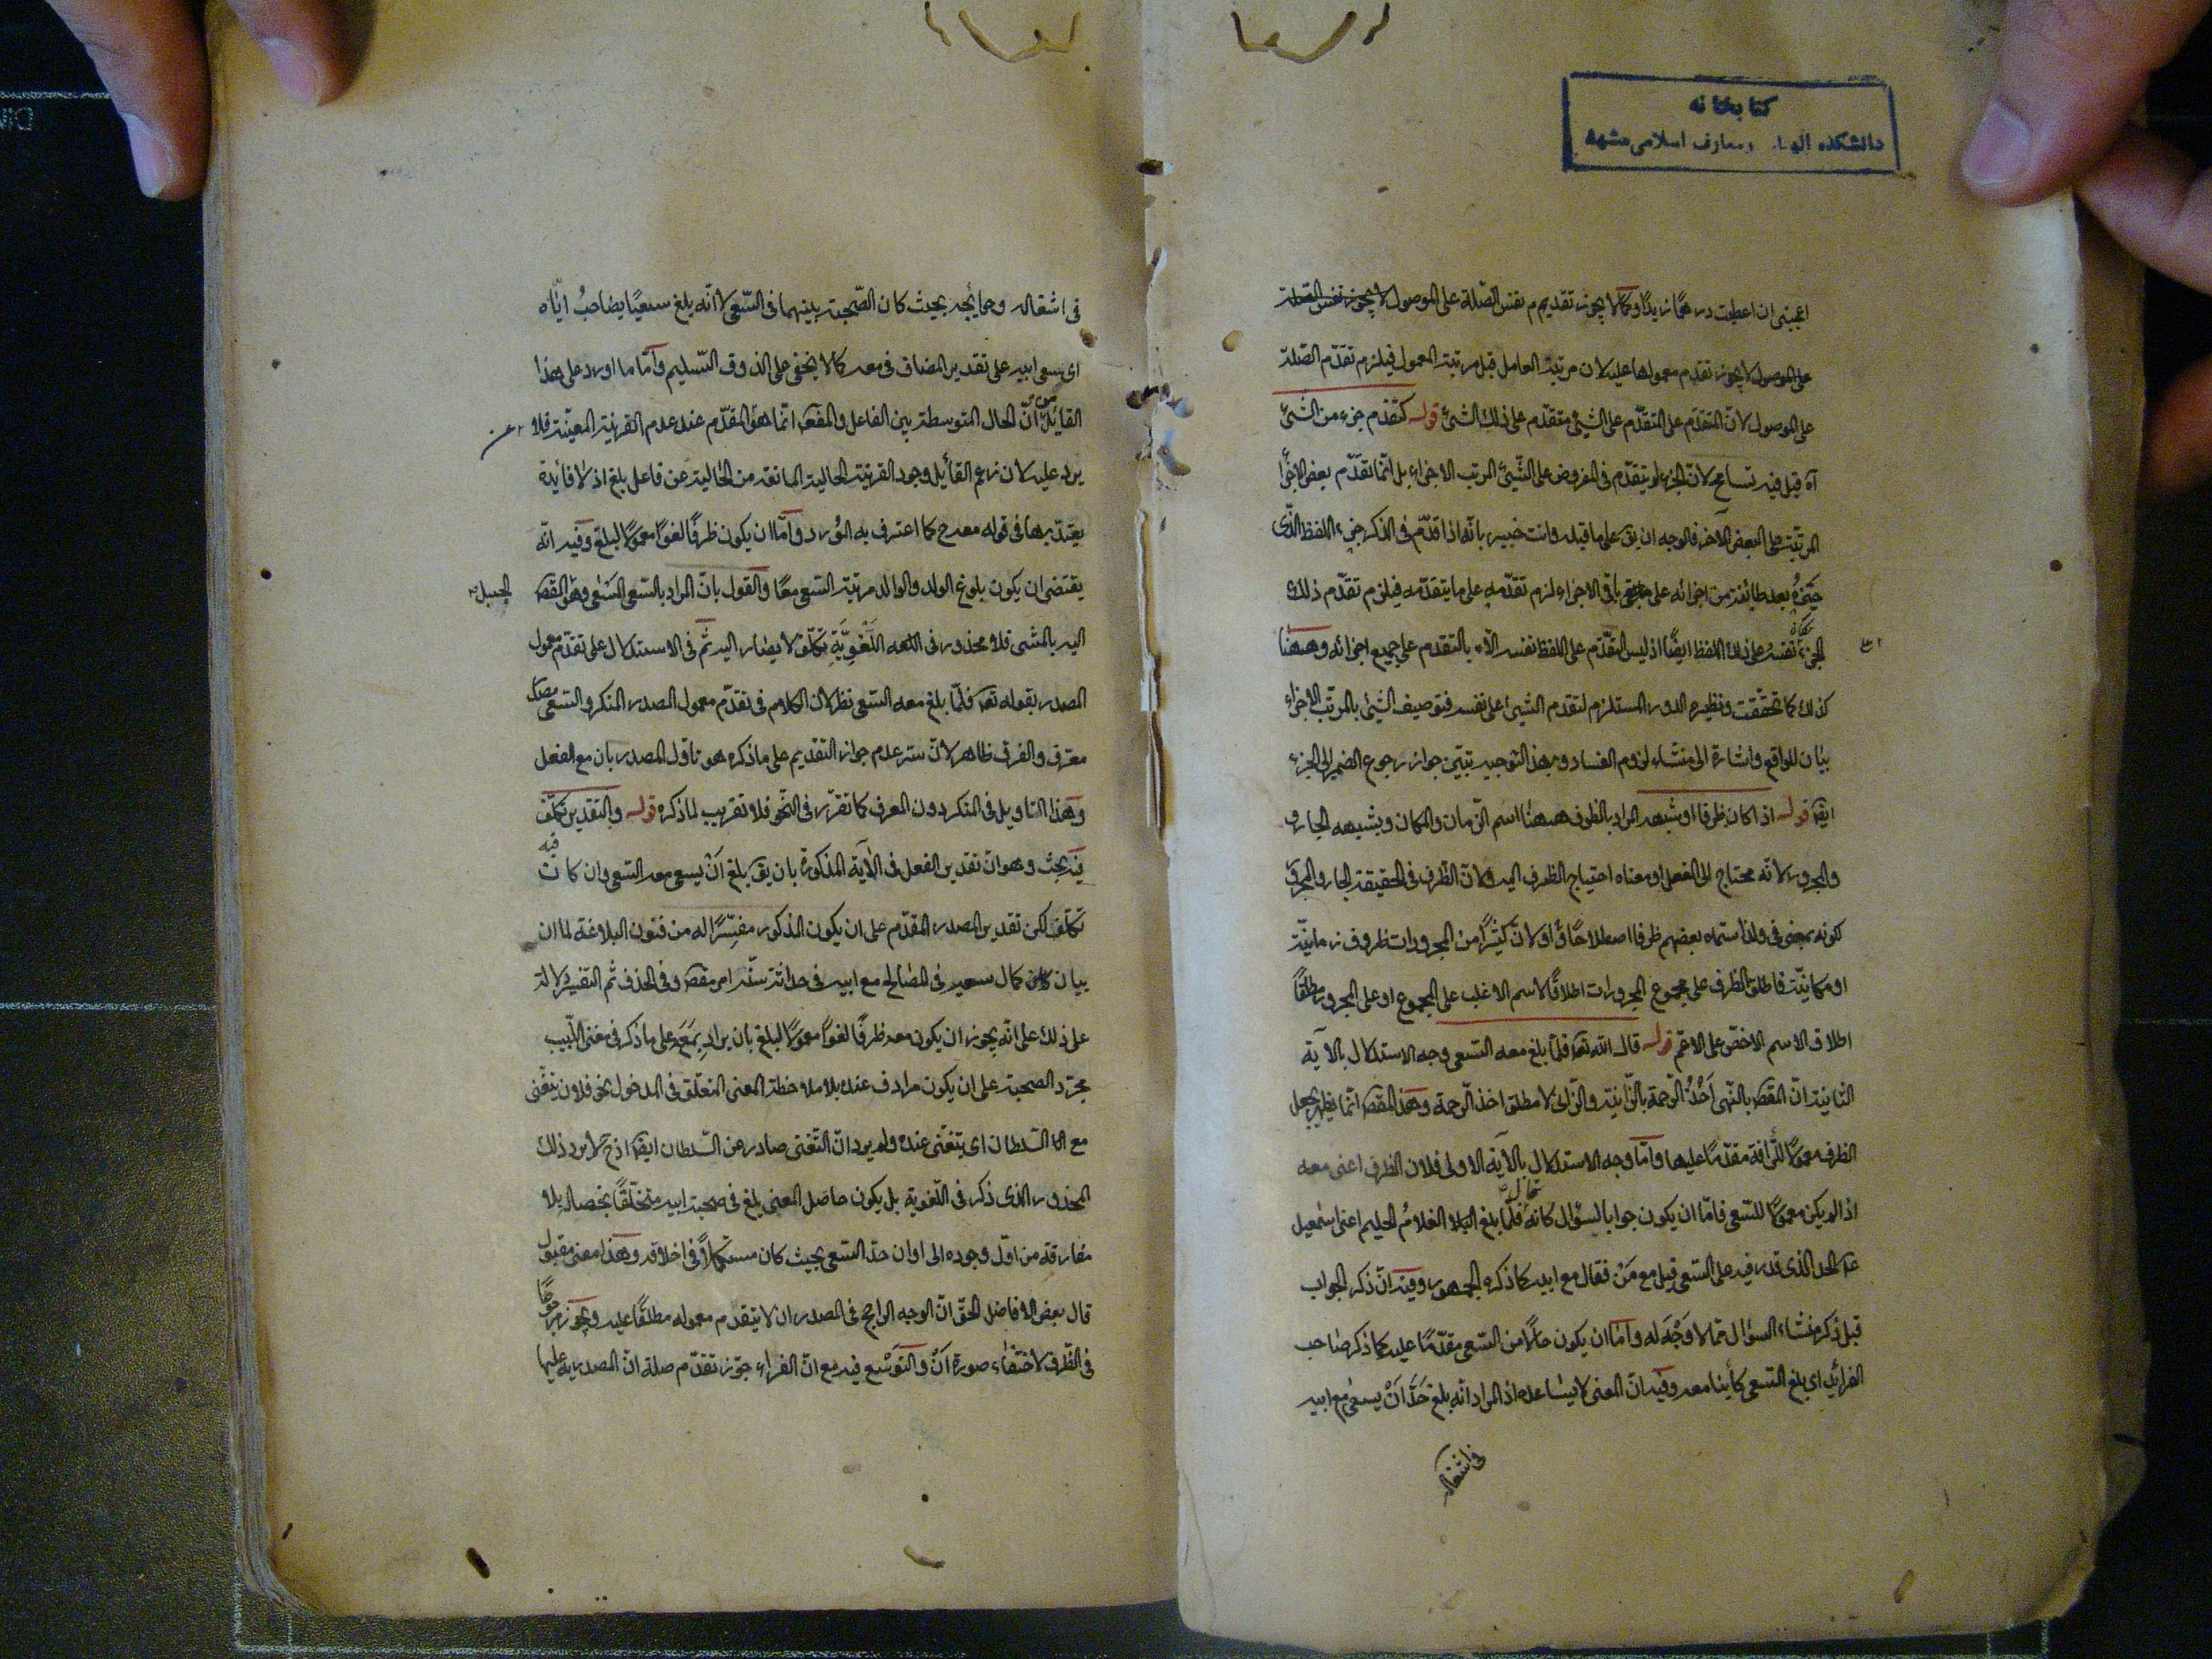 كتابخانه
دانشكده الهيا. ومعارف اسلامى مشهد
اعجبنى ان اعطيت درهمًا زيدًا وكما لا يجوز تقديم نفس الصّلة على الموصول لا يجوز نفس الصلة
على الموصول لا يجوز تقدم معمولها عليه لان مرتبة العامل قبل مرتبة المعمول فيلزم تقدّم الصّلة
على الموصول لانّ المتقدّم على المتقدّم على الشيئ متقدّم على ذلك الشئ قوله كتقدم جزء من الشئ
آه قيل فيه تسامح لانّ الجزء لم يتقدّم فى المفروض على الشّيئ المرتب الاجزاء بل انّما تقدّم بعض الاجزا
المرتبة على البعض الآخر فالوجه ان يق على ما قيله وانت خبير بانّه اذا قدّم فى الذكر جزء اللفظ الذى
حيّزه بعد طائفة من اجزائه على باقى الاجزاء لزم تقدّمه على ما يتقدّمه فيلزم تقدّم ذلك
الجزء نفسه على ذلك اللفظ ايضًا اذ ليس التقدّم على اللفظ نفسه الّا بالتقدم على جميع اجزائه وههنا
كذلك كما تحققت ونظيره الدور المستلزم لتقدم الشيئ على نفسه فتوصيف الشيئ بالمرتّب الاجزاء
بيان للواقع واشارة الى منشاء لزوم الفساد وبهذا التوجيه تبيّن جواز رجوع الضمير الى الجزء
ايضا قوله اذا كان ظرفا او شبهه المراد بالظرف ههنا اسم الزمان والمكان وبشبهه الجار و
والمجرور لانّه محتاج الى الفعل او معناه احتياج الظرف اليه ولانّ الظرف فى الحقيقة الجار والمجرور
كونه بمعنى فى ولذا سمّاه بعضهم ظرفا اصطلاحًا او لانّ كثيرًا من المجرورات ظروف زمانيّة
او مكانيّة فاطلق الظرف على مجموع المجرورات اطلاقًا لاسم الاغلب على المجموع او على المجرور مطلقًا
اطلاق الاسم الاخصّ على الاعمّ قوله قال الله تعا فلمّا بلغ معه السعى وجه الاستدلال بالآية
الثانية انّ القصد بالنّهى اخذ الرّحمة بالزّانية والزّانى لا مطلق اخذ الرحمة وهذا المقصد انّما يظهر بجعل
الظرف معمولًا للرّأفة مقدّمًا عليها وامّا وجه الاستدلال بالآية الاولى فلان الظرف اعنى معه
اذا لم يكن معمولًا للسّعى فامّا ان يكون جوابا لسؤال كانه فلمّا بلغ الغلام الحليم اعنى اسمعيل
عم الحد الذى قدر فيه على السّعى قيل مع مَن فقال مع ابيه كما ذكره الجمهور وفيه انّ ذكر الجواب
قبل ذكر منشاء السؤال ممّا لا وجه له وامّا ان يكون حالًا من السّعى مقدّمًا عليه كما ذكر صاحب
الفرائد اى بلغ السّعى كائنا معه وفيه انّ المعنى لا يساعده اذ المراد انّه بلغ حدّ ان يسعى مع ابيه
فى اشغاله
فى اشغاله وحوائجه بحيث كان الصّحبة بينهما فى السّعى لا انّه بلغ سعيًا يصاحبُ ايّاه
اى سعى ابيه على تقدير المضاف فى معه كما لا يخفى على الذوق السّليم وامّا ما اورد على هذا
القائل من انّ الحال المتوسطة بين الفاعل والمفعول انّما هو المقدّم عند عدم القرينة المعيّنة فلا
يرد عليه لان زعم القائل وجود القرينة الحالية المانعة من الحالية عن فاعل بلغ اذ لا فايدة
يعتدّ بها فى قوله معه ح كما اعترف به المُورِد وامّا ان يكون ظرفًا لغوًا معمولًا لبلغ وفيه انّه
يقتضى ان يكون بلوغ الولد والوالد مرتبة السّعى معًا والقول بانّ المراد بالسّعى المسعى وهو القصد
الجبل
اليه بالمشى فلا محذور فى اللغويّة تكلّف لا يصار اليه ثم فى الاستدلال على تقدّم معمول
المصدر بقوله تعا فلمّا بلغ معه السّعى نظر لان الكلام فى تقدّم معمول المصدر المنكر والسّعى مصدر
معرّف والفرق ظاهر لانّ سرّ عدم جواز التقديم على ما ذكره هو تاوّل المصدر بان مع الفعل
وهذا التاويل فى المنكر دون المعرف كما تقرّر فى النّحو فلا تقريب لما ذكره قوله والتقدير تكلّف
فيه بحث وهو انّ تقدير الفعل فى الآية المذكورة بان يق بلغ أنْ يسعى معه السّعى وان كان فيه
تكلّف لكن تقدير المصدر المقدّم على ان يكون المذكور مفسّرًا له من فنون البلاغة لما ان
بيان كمال سعيه فى المصالح مع ابيه فى حداثة سنّه امر مقصود وفى الحذف ثم التفسير دلالة
على ذلك على انّه يجوز ان يكون معه ظرفًا لغوًا معمولًا لبلغ بان يراد بمع على ما ذكر فى مغنى اللّبيب
مجرّد الصحبة على ان يكون مرادف عند بلا ملاحظة المعنى المتعلّق فى المدخول نحو فلان يتغنّى
مع السّلطان اى يتغنّى عنده ولم يرد انّ التّغنى صادر عن السّلطان ايضا اذ ح لا يرد ذلك
المحذور الذى ذكر فى اللّغوية بل يكون حاصل المعنى بلغ فى صحبة ابيه متخلّقًا بخصاله بلا
مفارقة من اوّل وجوده الى اوان حدّ السّعى بحيث كان مستكملًا فى اخلاقه وهذا معنى مقبول
قال بعض الافاضل الحقّ انّ الوجه الراجح فى المصدر ان لا يتقدم معموله مطلقًا عليه ويجوز مرجوحًا
فى الظّرف لاختفاء صورة أنْ والتّوسّع فيه مع انّ الفراء جوّز تقدّم صلة ان المصدرية عليها